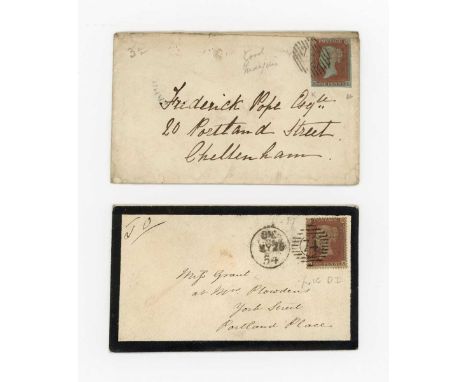 3-
Good
Frederick Pope Esqre
20 Portland Street
Cheltenham.
MY 26
54
Miss Grant
at Mrs Plowdens
York Street
Portland Place